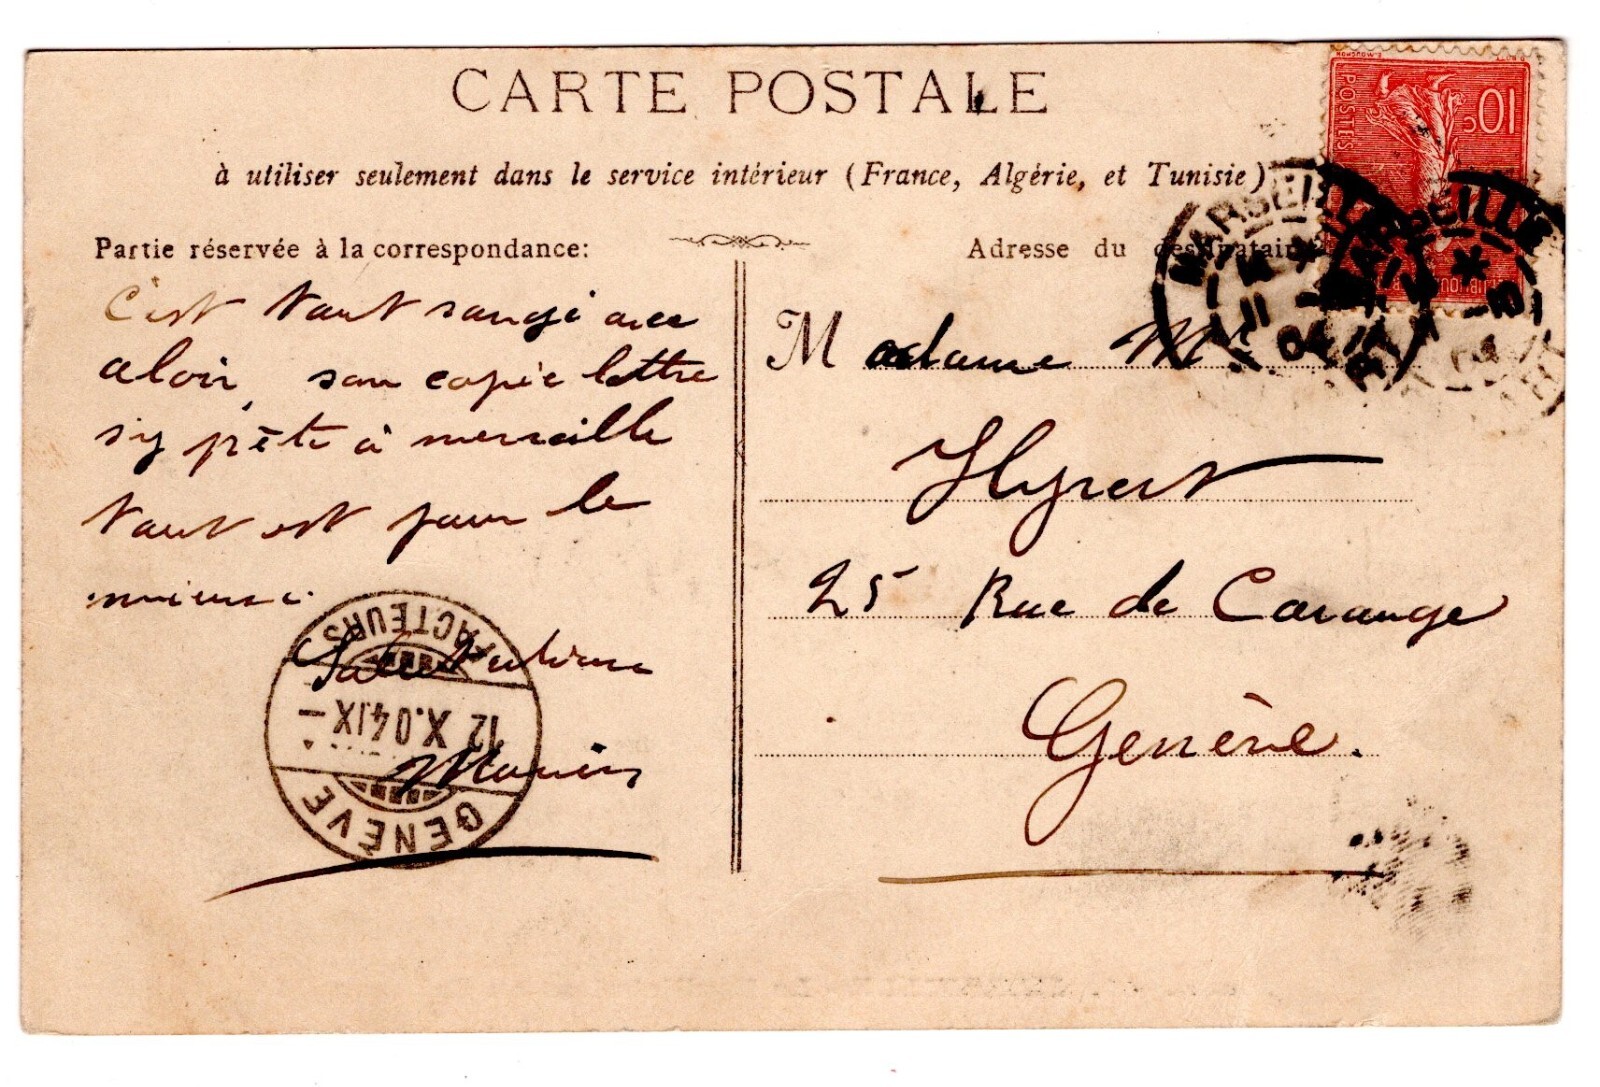 CARTE POSTALE
à utiliser seulement dans le service intérieur (France, Algérie, et Tunisie)
Partie réservée à la correspondance:
C'est tout sangé avec
aloir, son copie lettre
s'y prête à merveille
tout est pour le
mieux.
Marius
Adresse du destinataire
Madame M
Hyvert
25 Rue de Carouge
Genève.
POSTES
10c
MARSEILLE
11
04
MARSEILLE
GENÈVE
12.X.04.IX
FACTEURS